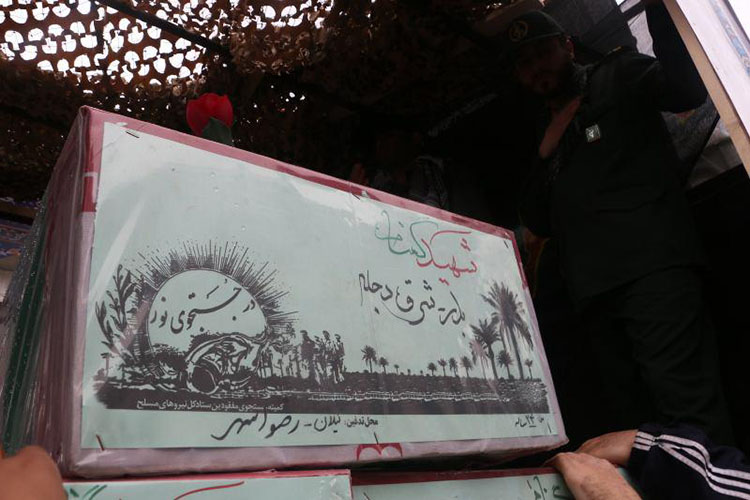 شهید گمنام
بدر - شرق دجله
در جستجوی نور
کمیته جستجوی مفقودین ستاد کل نیروهای مسلح
محل تدفین: گیلان - رضوانشهر
۲۳ ساله